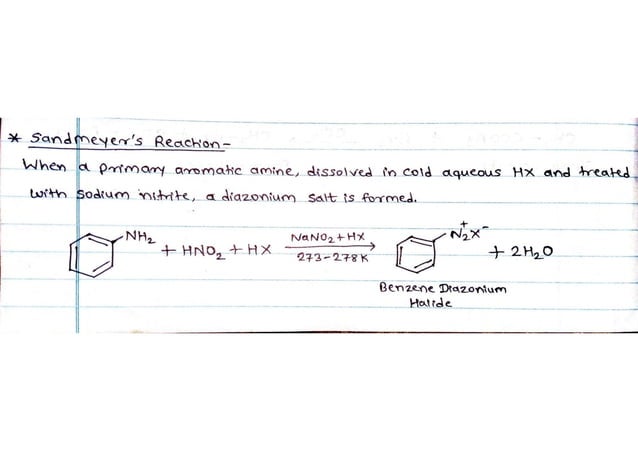 * Sandmeyer's Reaction-
When a primary aromatic amine, dissolved in cold aqueous HX and treated
with sodium nitrite, a diazonium salt is formed.
NH₂ + HNO₂ + HX NaNO₂+HX 273-278K → N₂⁺X⁻ + 2H₂O
Benzene Diazonium
Halide